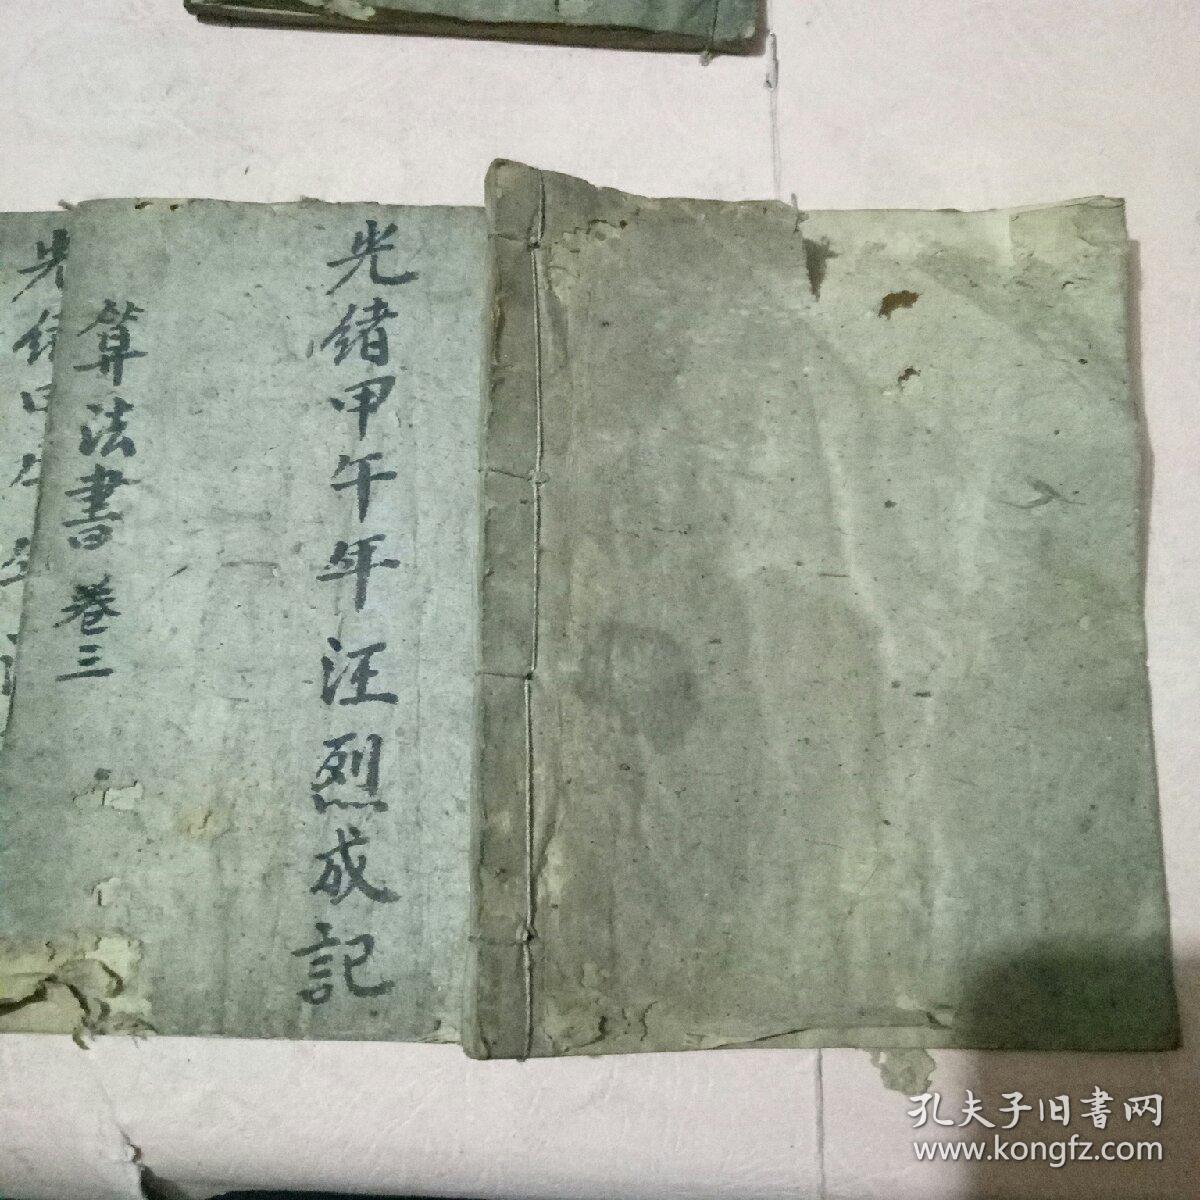 光緒甲午年汪烈成記
算法書 卷三
光緒甲午年
孔夫子旧書网
www.kongfz.com